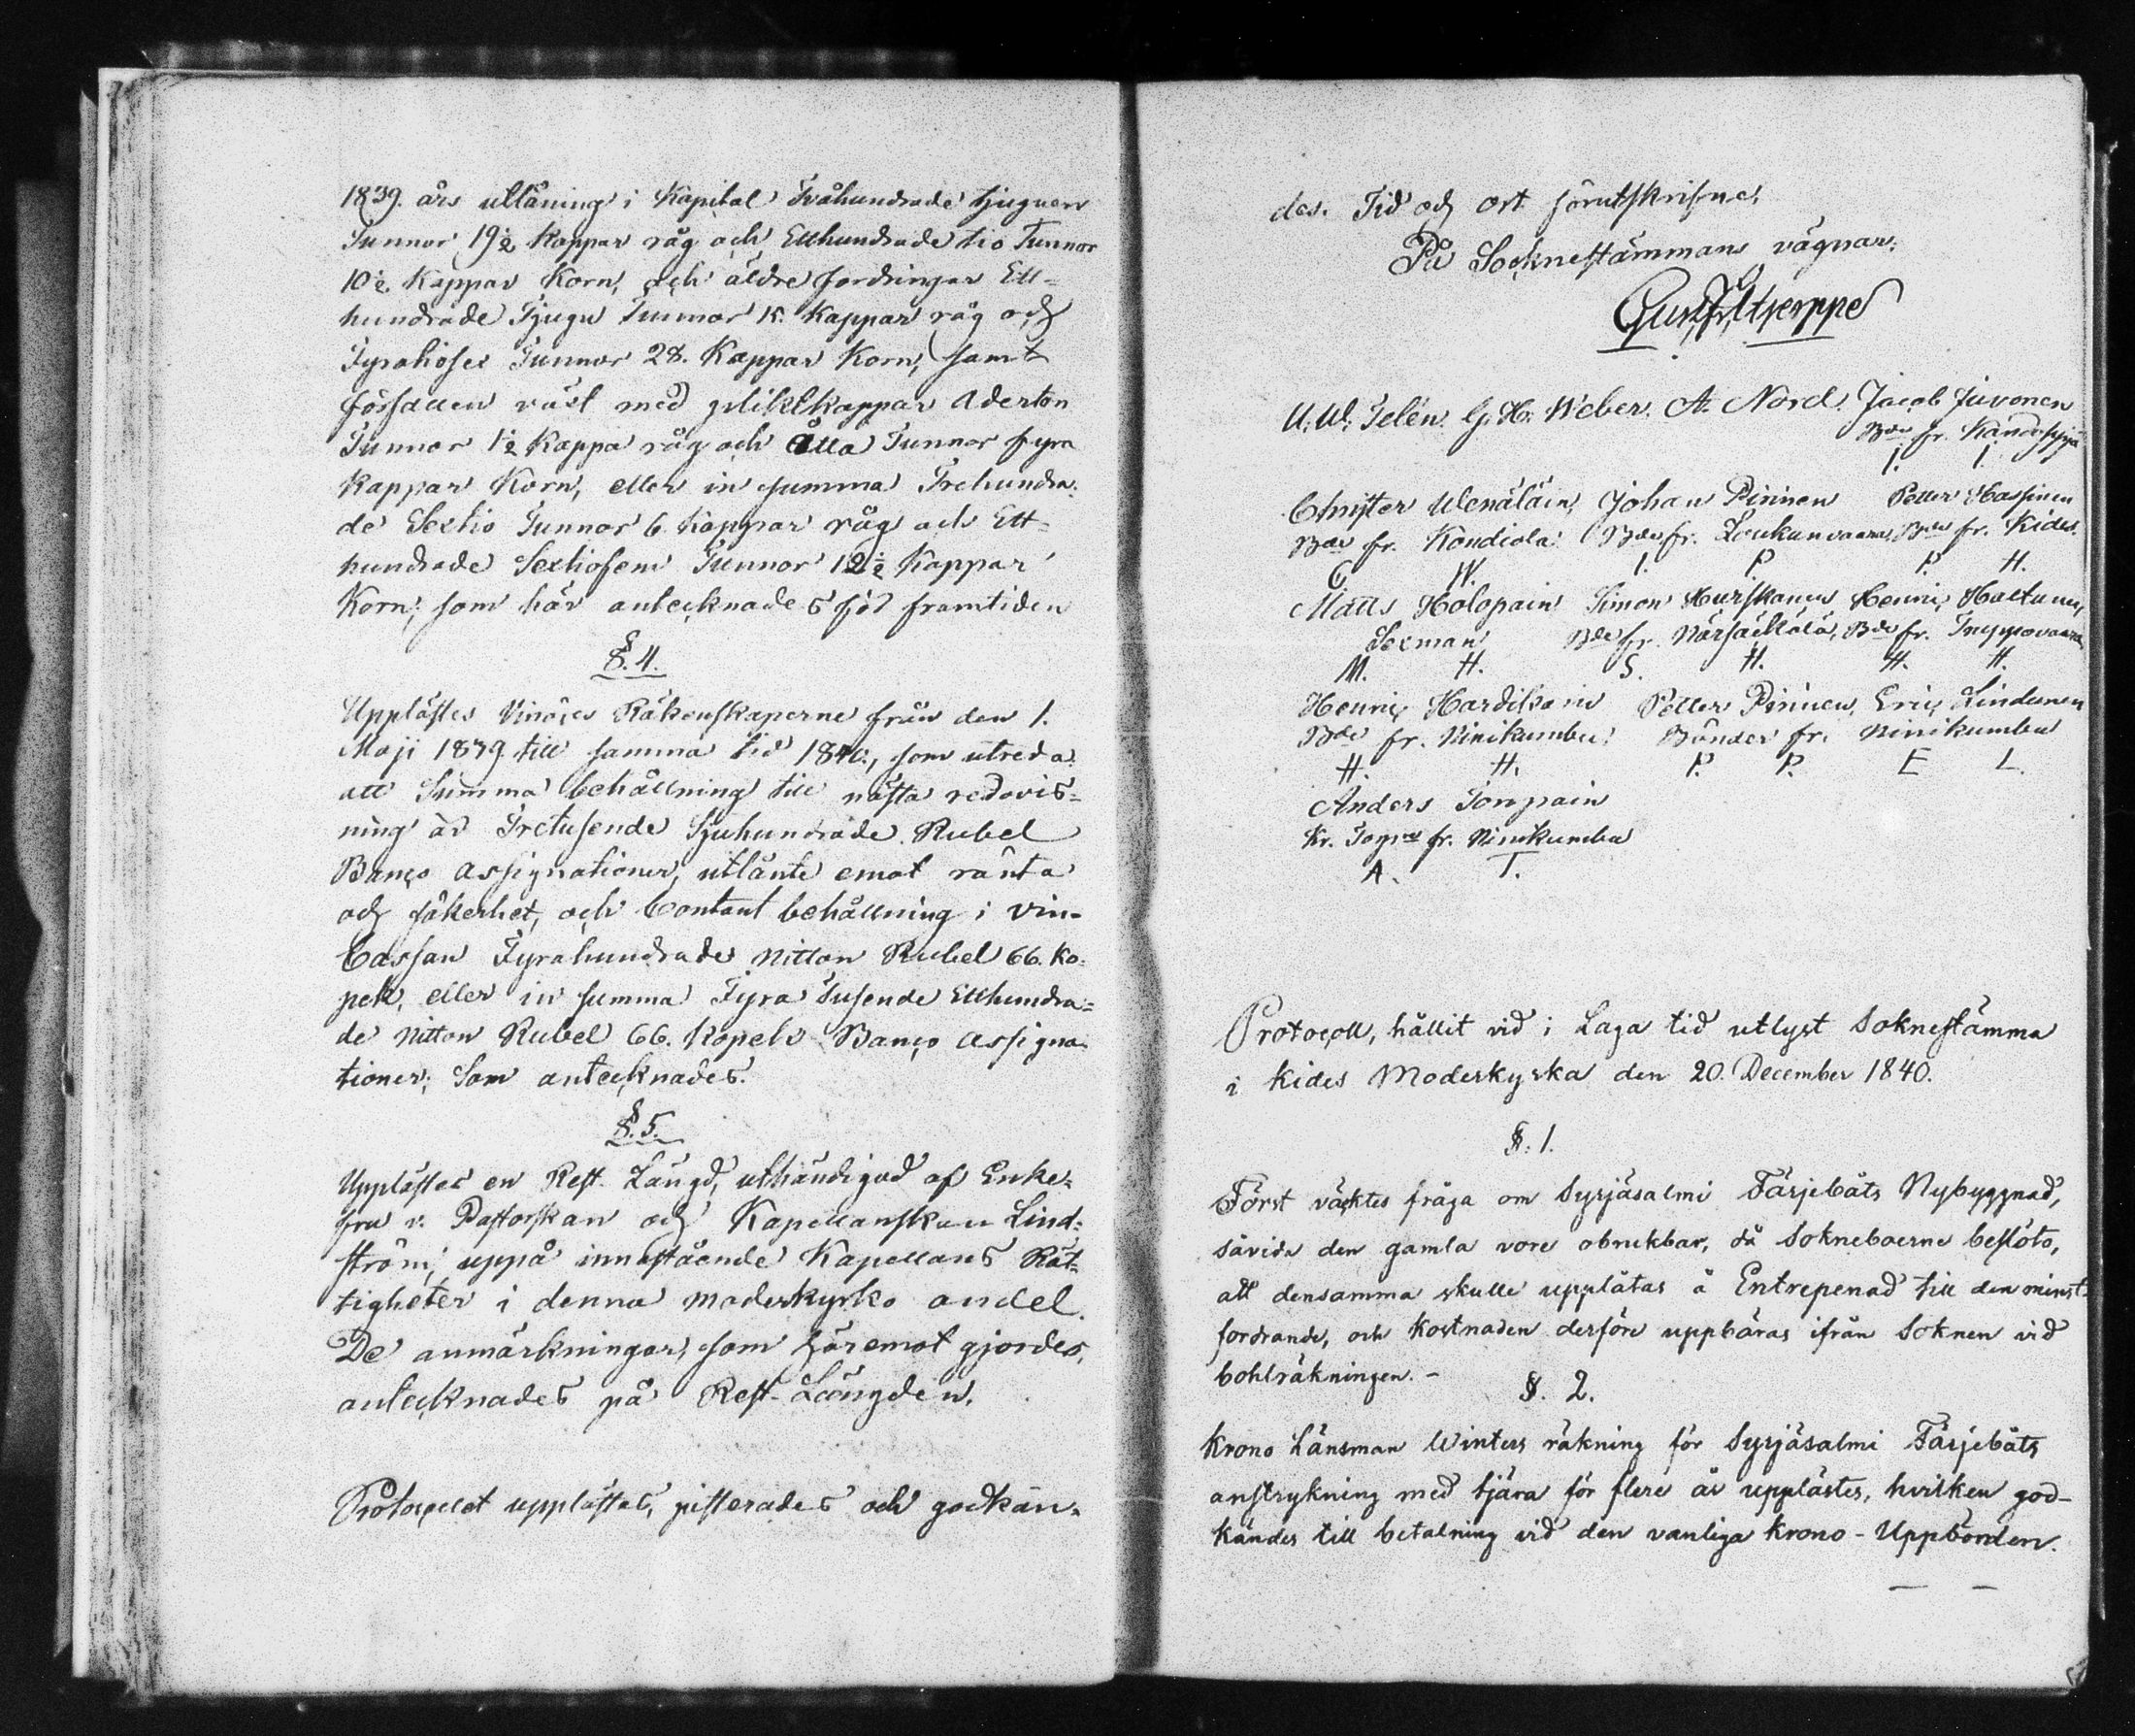 1839. års utlåning i Kapital Tvåhundrade tjuguen
Tunnor 19½ Kappar råg och Etthundrade tio Tunnor
10½ Kappar Korn, och äldre fordringar Ett-
hundrade Tjugu Tunnor 15. Kappar råg och
Fyratiosex Tunnor 28. Kappar Korn, samt
förfallen växt med pliktkappar Aderton
Tunnor 1½ Kappa råg och Åtta Tunnor fyra
Kappar Korn, eller in summa Trehundra-
de Sextio Tunnor 6 Kappar råg och Ett-
hundrade Sextiofem Tunnor 12½ Kappar
Korn, som här antecknades för framtiden
§. 4.
Upplästes Räkenskaperne från den 1.
Maji 1839 till samma tid 1840., som utreda
att Summa behållning till nästa redovis=
ning är Tretusende Sjuhundrade Rubel
Banco assignationer, utlänte emot ränta
och säkerhet, och Contant behållning i Vin-
Cassan Fyrahundrade Nitton Rubel 66. Ko-
pek, eller in summa Fyra Tusende Etthundra=
de Nitton Rubel 66. Kopek Banco Assigna-
tioner; Som antecknades.
§. 5.
Upplästes en Rest. Längd, uthändigad af Enke-
fru v. Pastorskan och Kapellanskan Lind=
ström, uppå innestående Kapellans Rät-
tigheter i denna moderkyrko andel.
De anmärkningar, som häremot gjordes,
antecknades på Rest-Längden.
Protocollet upplästes, justerades och godkän-
des. Tid och ort förutskrifne,
På Socknestämmans vägnar,
U. W. Telén. G. H. Weber. A. Nord. Jacob Juvonen
Bde fr.
I. I.
Christer Wenäläin, Johan Pirinen Petter Hassinen
Bde fr. Kondiola. Bde fr. Loukunvaara, Bde fr. Kides.
C W. I. P. P. H.
Matts Holopain Simon Hurskanen Henric Hactunen,
Sexman Bde fr. Närsäkälä, Bde fr.
M. H. S. H. H. H.
Henric Hardikain Petter Pirinen, Eric Lindunen
Bde fr. Ninikumbu. Bönder fr. Ninikumbu
H. H. P. P. E L.
Anders Tonpain
Kr. fr. Ninikumbu
A. T.
Protocoll, hållit vid i Laga tid utlyst Soknestämma
i Kides Moderkyrka den 20. December 1840.
§. 1.
Först väcktes fråga om Syrjäsalmi Färjebåts Nybyggnad,
såvida den gamla vore obrukbar, då Sokneboerne beslöto,
att densamma skulle upplåtas å Entrepenad till den minst-
fordrande, och kostnaden derföre uppbäras ifrån Soknen vid
bohlräkningen. -
§. 2.
Krono Länsman Winters räkning för Syrjäsalmi Färjebåts
anstrykning med tjära för flere år upplästes, hvilken god-
kändes till betalning vid den vanliga Krono-Uppbörden.
— —